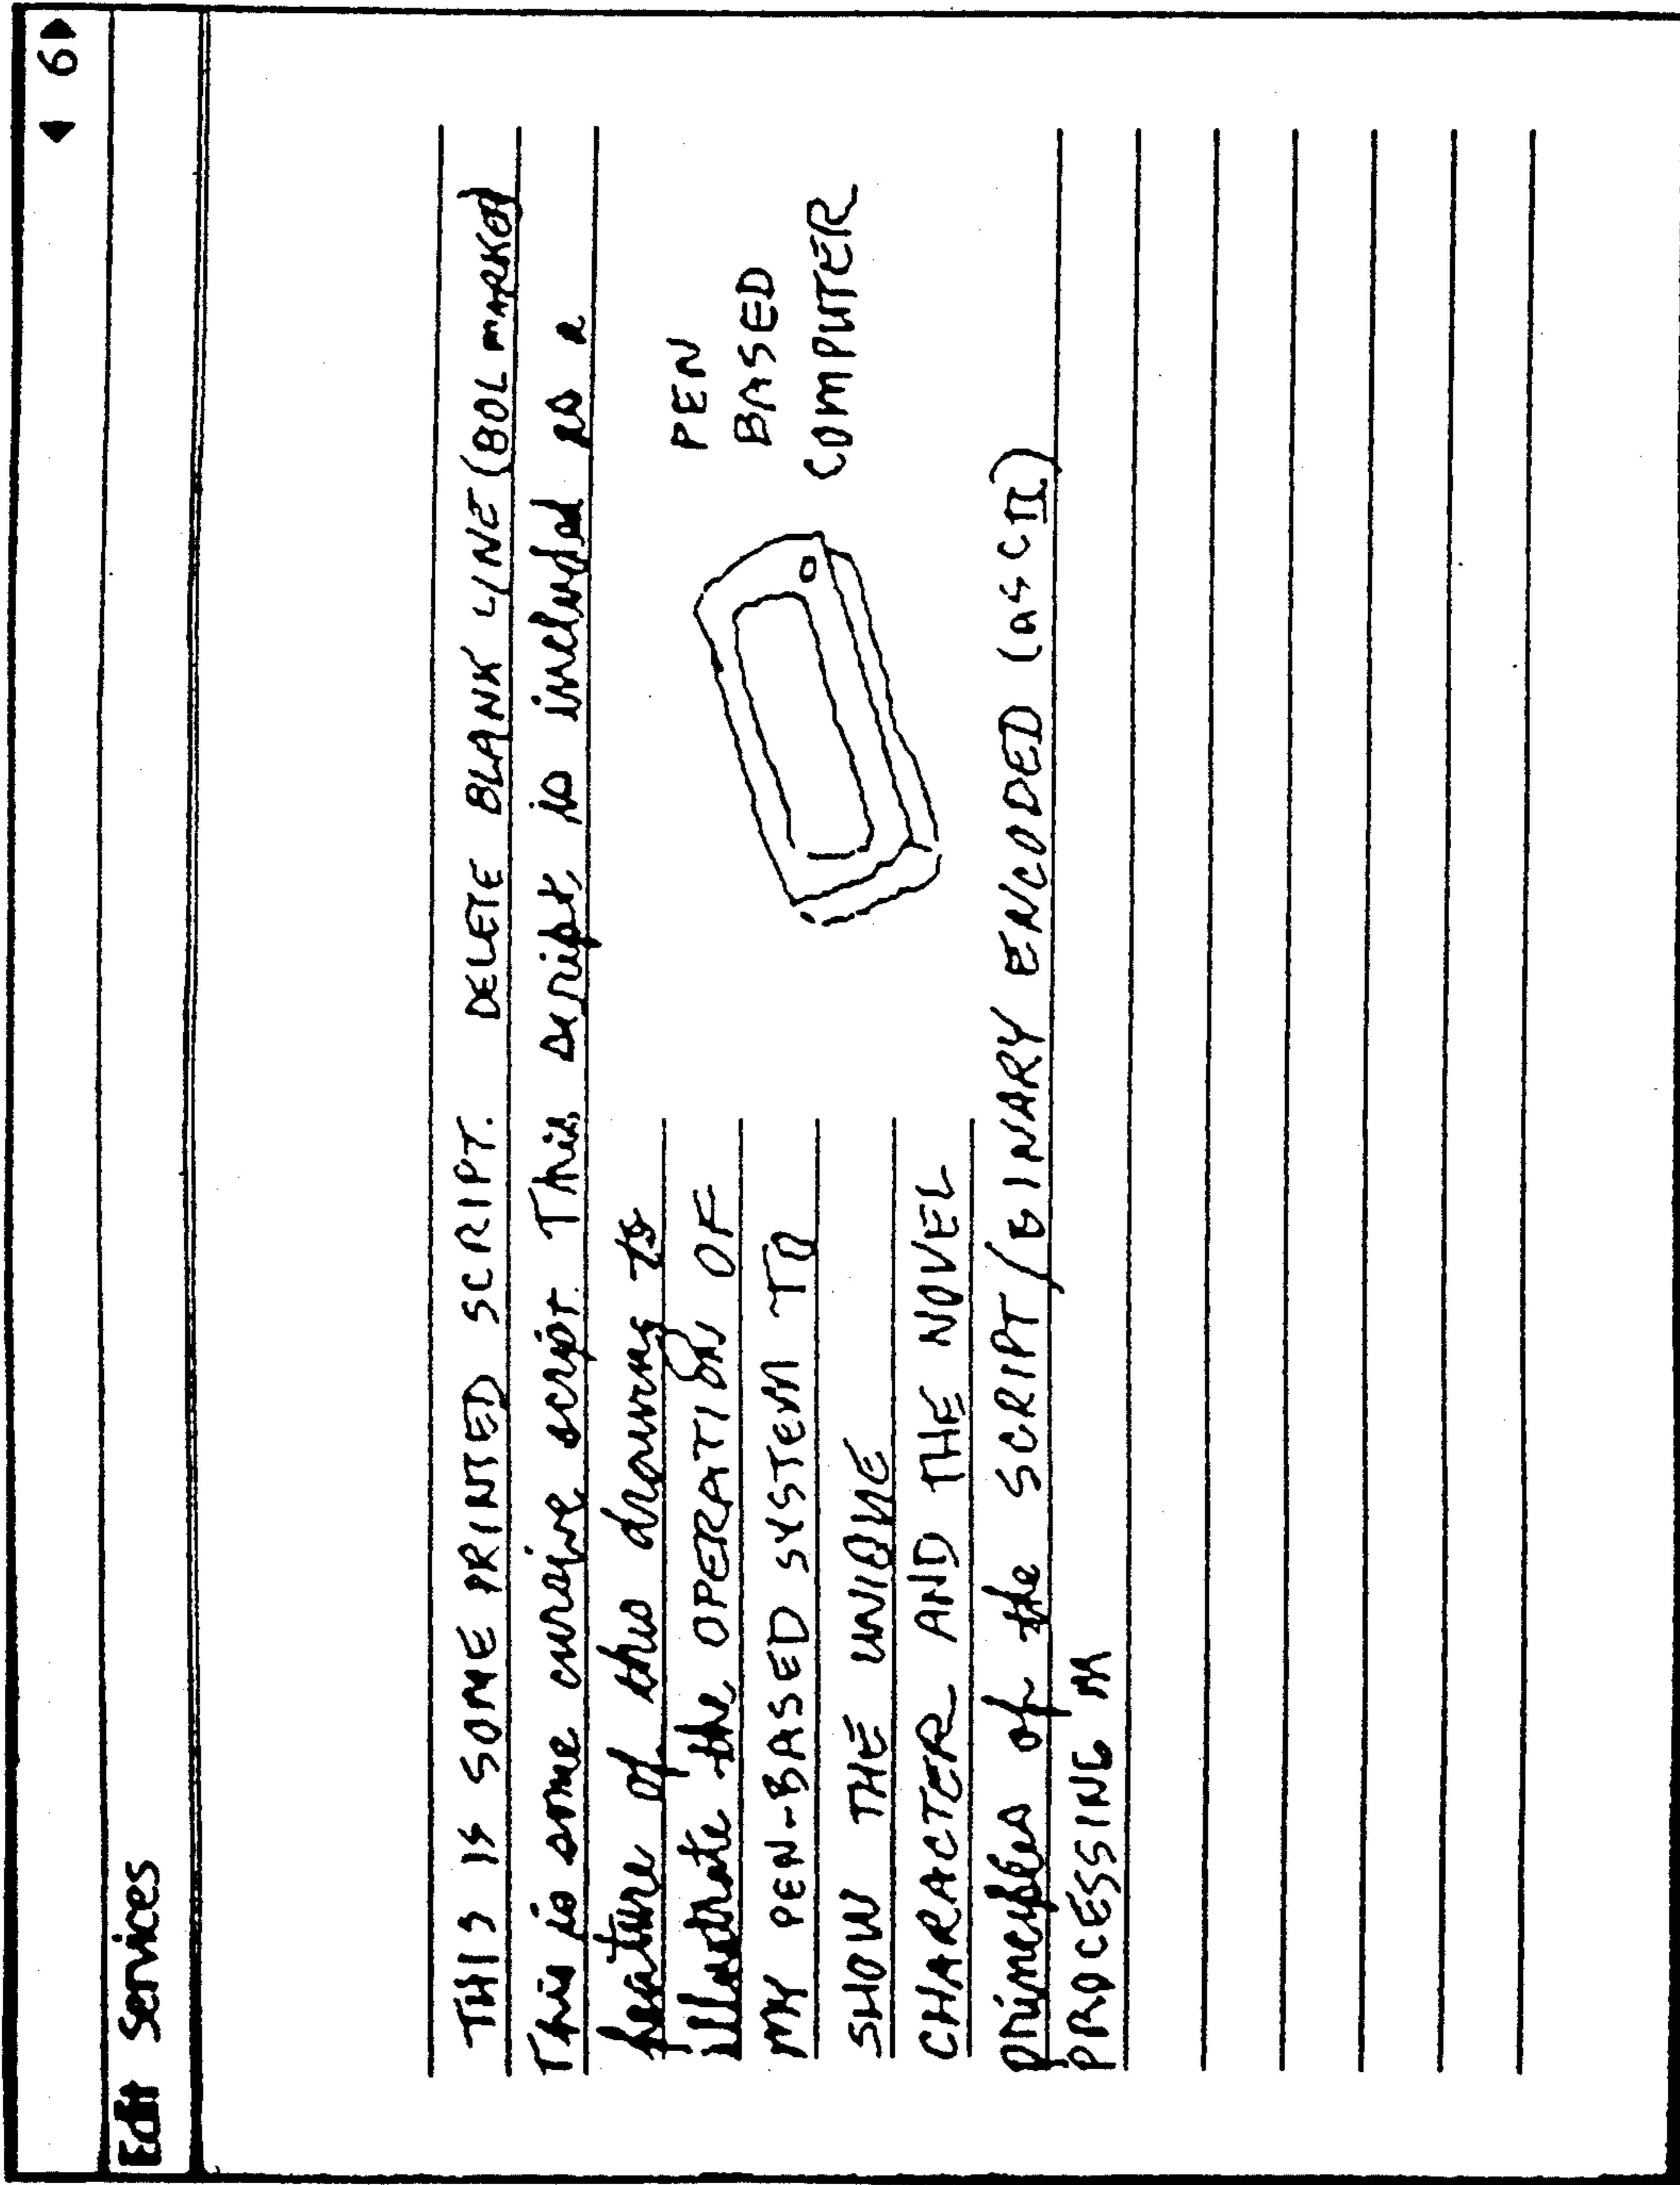 ◀ 6 ▶
Edit Services
THIS IS SOME PRINTED SCRIPT. DELETE BLANK LINE (BOL MARKED
This is some cursive script. This script, is included as a
feature of this drawing to
illustrate the OPERATION OF
MY PEN-BASED SYSTEM TO
SHOW THE UNIQUE
CHARACTER AND THE NOVEL
PEN
BASED
COMPUTER
principles of the SCRIPT/BINARY ENCODED (ASCII)
PROCESSING M